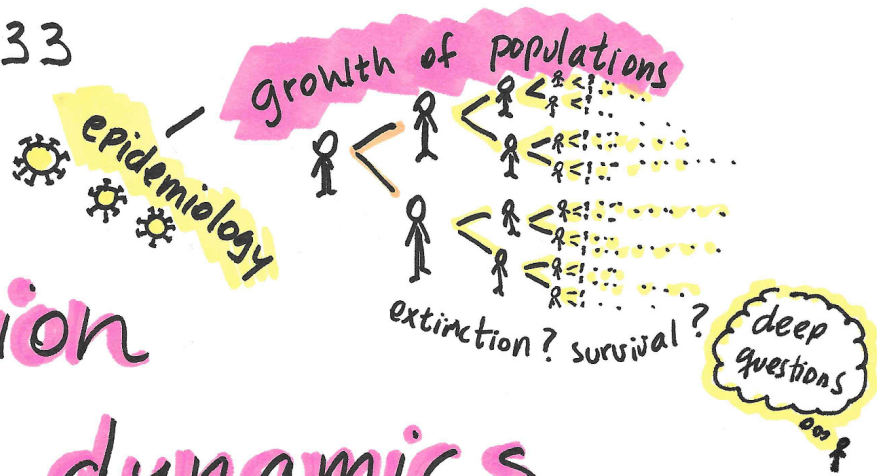 33
growth of populations
epidemiology
extinction? survival?
deep
questions
ion
dynamics